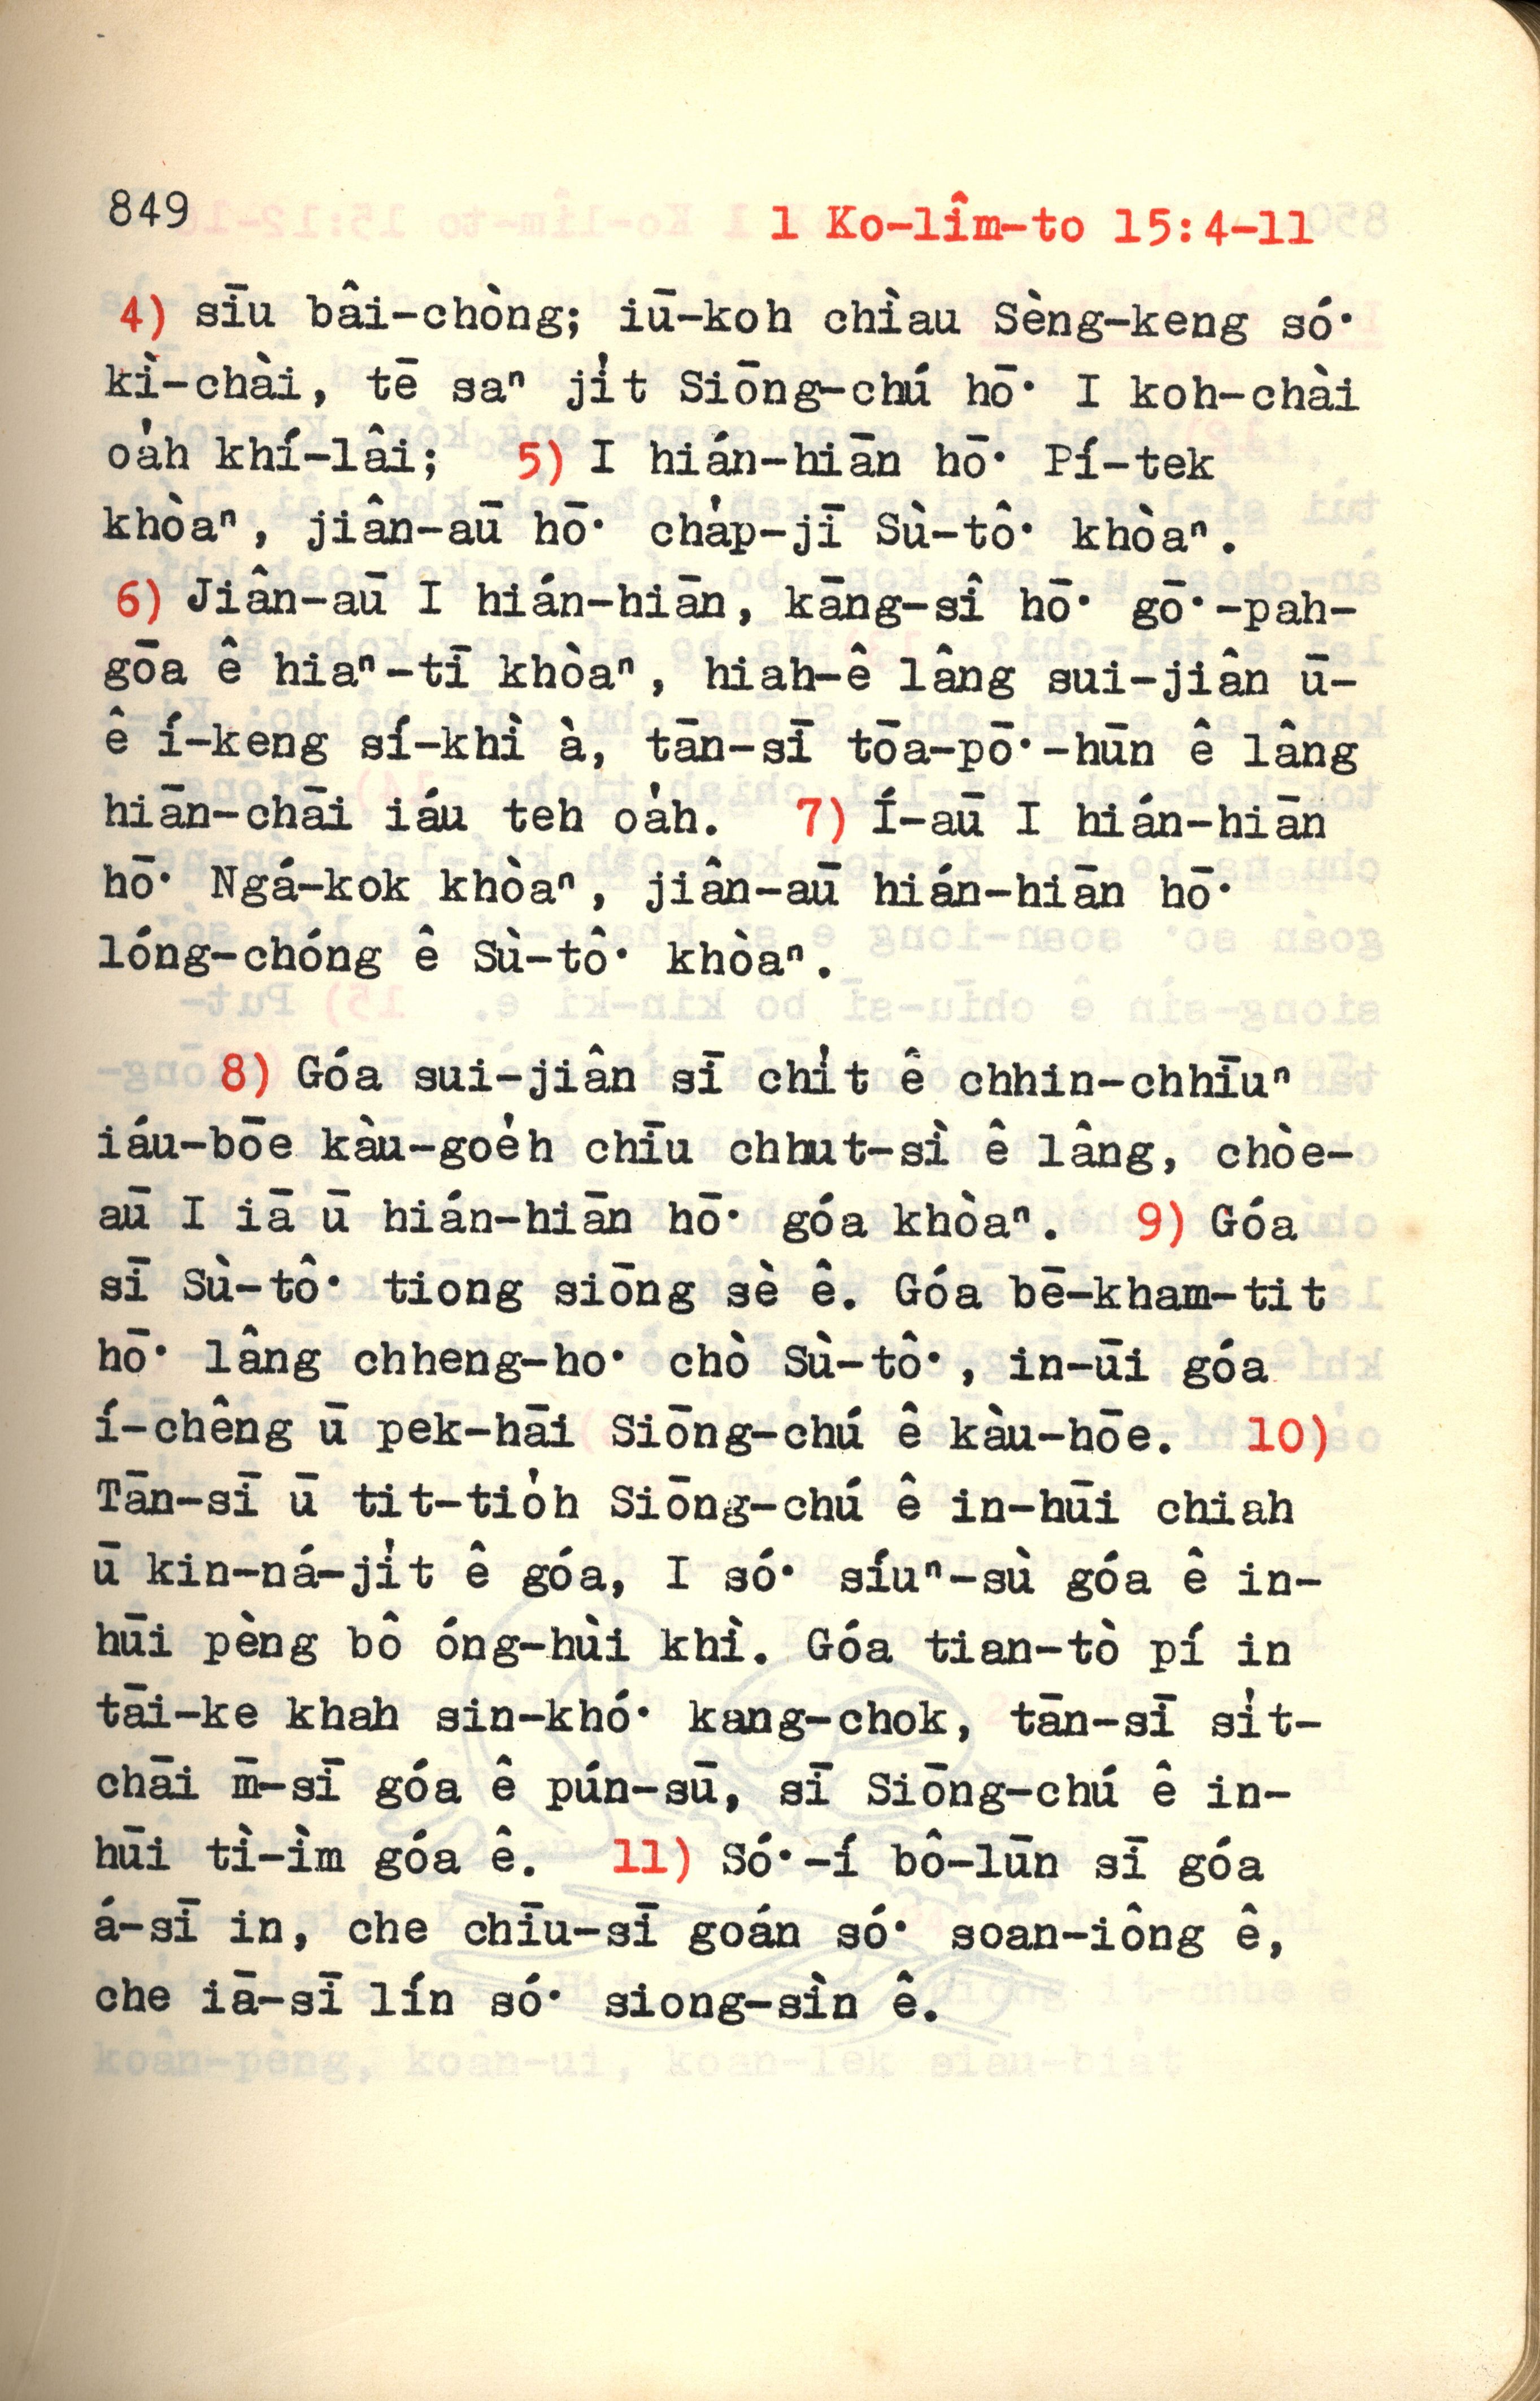 849
1 Ko-lîm-to 15:4-11
4) sīu bâi-chòng; iū-koh chìau Sèng-keng só͘
kì-chài, tē saⁿ ji̍t Siōng-chú hō͘ I koh-chài
oa̍h khí-lâi; 5) I hián-hiān hō͘ Pí-tek
khòaⁿ, jiân-aū hō͘ cha̍p-jī Sù-tô͘ khòaⁿ.
6) Jiân-aū I hián-hiān, kāng-sî hō͘ gō͘-pah-
gōa ê hiaⁿ-tī khòaⁿ, hiah-ê lâng sui-jiân ū-
ê í-keng sí-khì à, tān-sī tōa-pō͘-hūn ê lâng
hiān-chāi iáu teh oa̍h. 7) Í-aū I hián-hiān
hō͘ Ngá-kok khòaⁿ, jiân-aū hián-hiān hō͘
lóng-chóng ê Sù-tô͘ khòaⁿ.
8) Góa sui-jiân sī chi̍t ê chhin-chhīuⁿ
iáu-bōe kàu-goe̍h chīu chhut-sì ê lâng, chòe-
aū I iā ū hián-hiān hō͘ góa khòaⁿ. 9) Góa
sī Sù-tô͘ tiong siōng sè ê. Góa bē-kham-tit
hō͘ lâng chheng-ho͘ chò Sù-tô͘, in-ūi góa
í-chêng ū pek-hāi Siōng-chú ê kàu-hōe. 10)
Tān-sī ū tit-tio̍h Siōng-chú ê in-hūi chiah
ū kin-ná-ji̍t ê góa, I só͘ síuⁿ-sù góa ê in-
hūi pèng bô óng-hùi khì. Góa tian-tò pí in
tāi-ke khah sin-khó͘ kang-chok, tān-sī si̍t-
chāi m̄-sī góa ê pún-sū, sī Siōng-chú ê in-
hūi tì-ìm góa ê. 11) Só͘-í bô-lūn sī góa
á-sī in, che chīu-sī goán só͘ soan-iông ê,
che iā-sī lín só͘ siong-sìn ê.